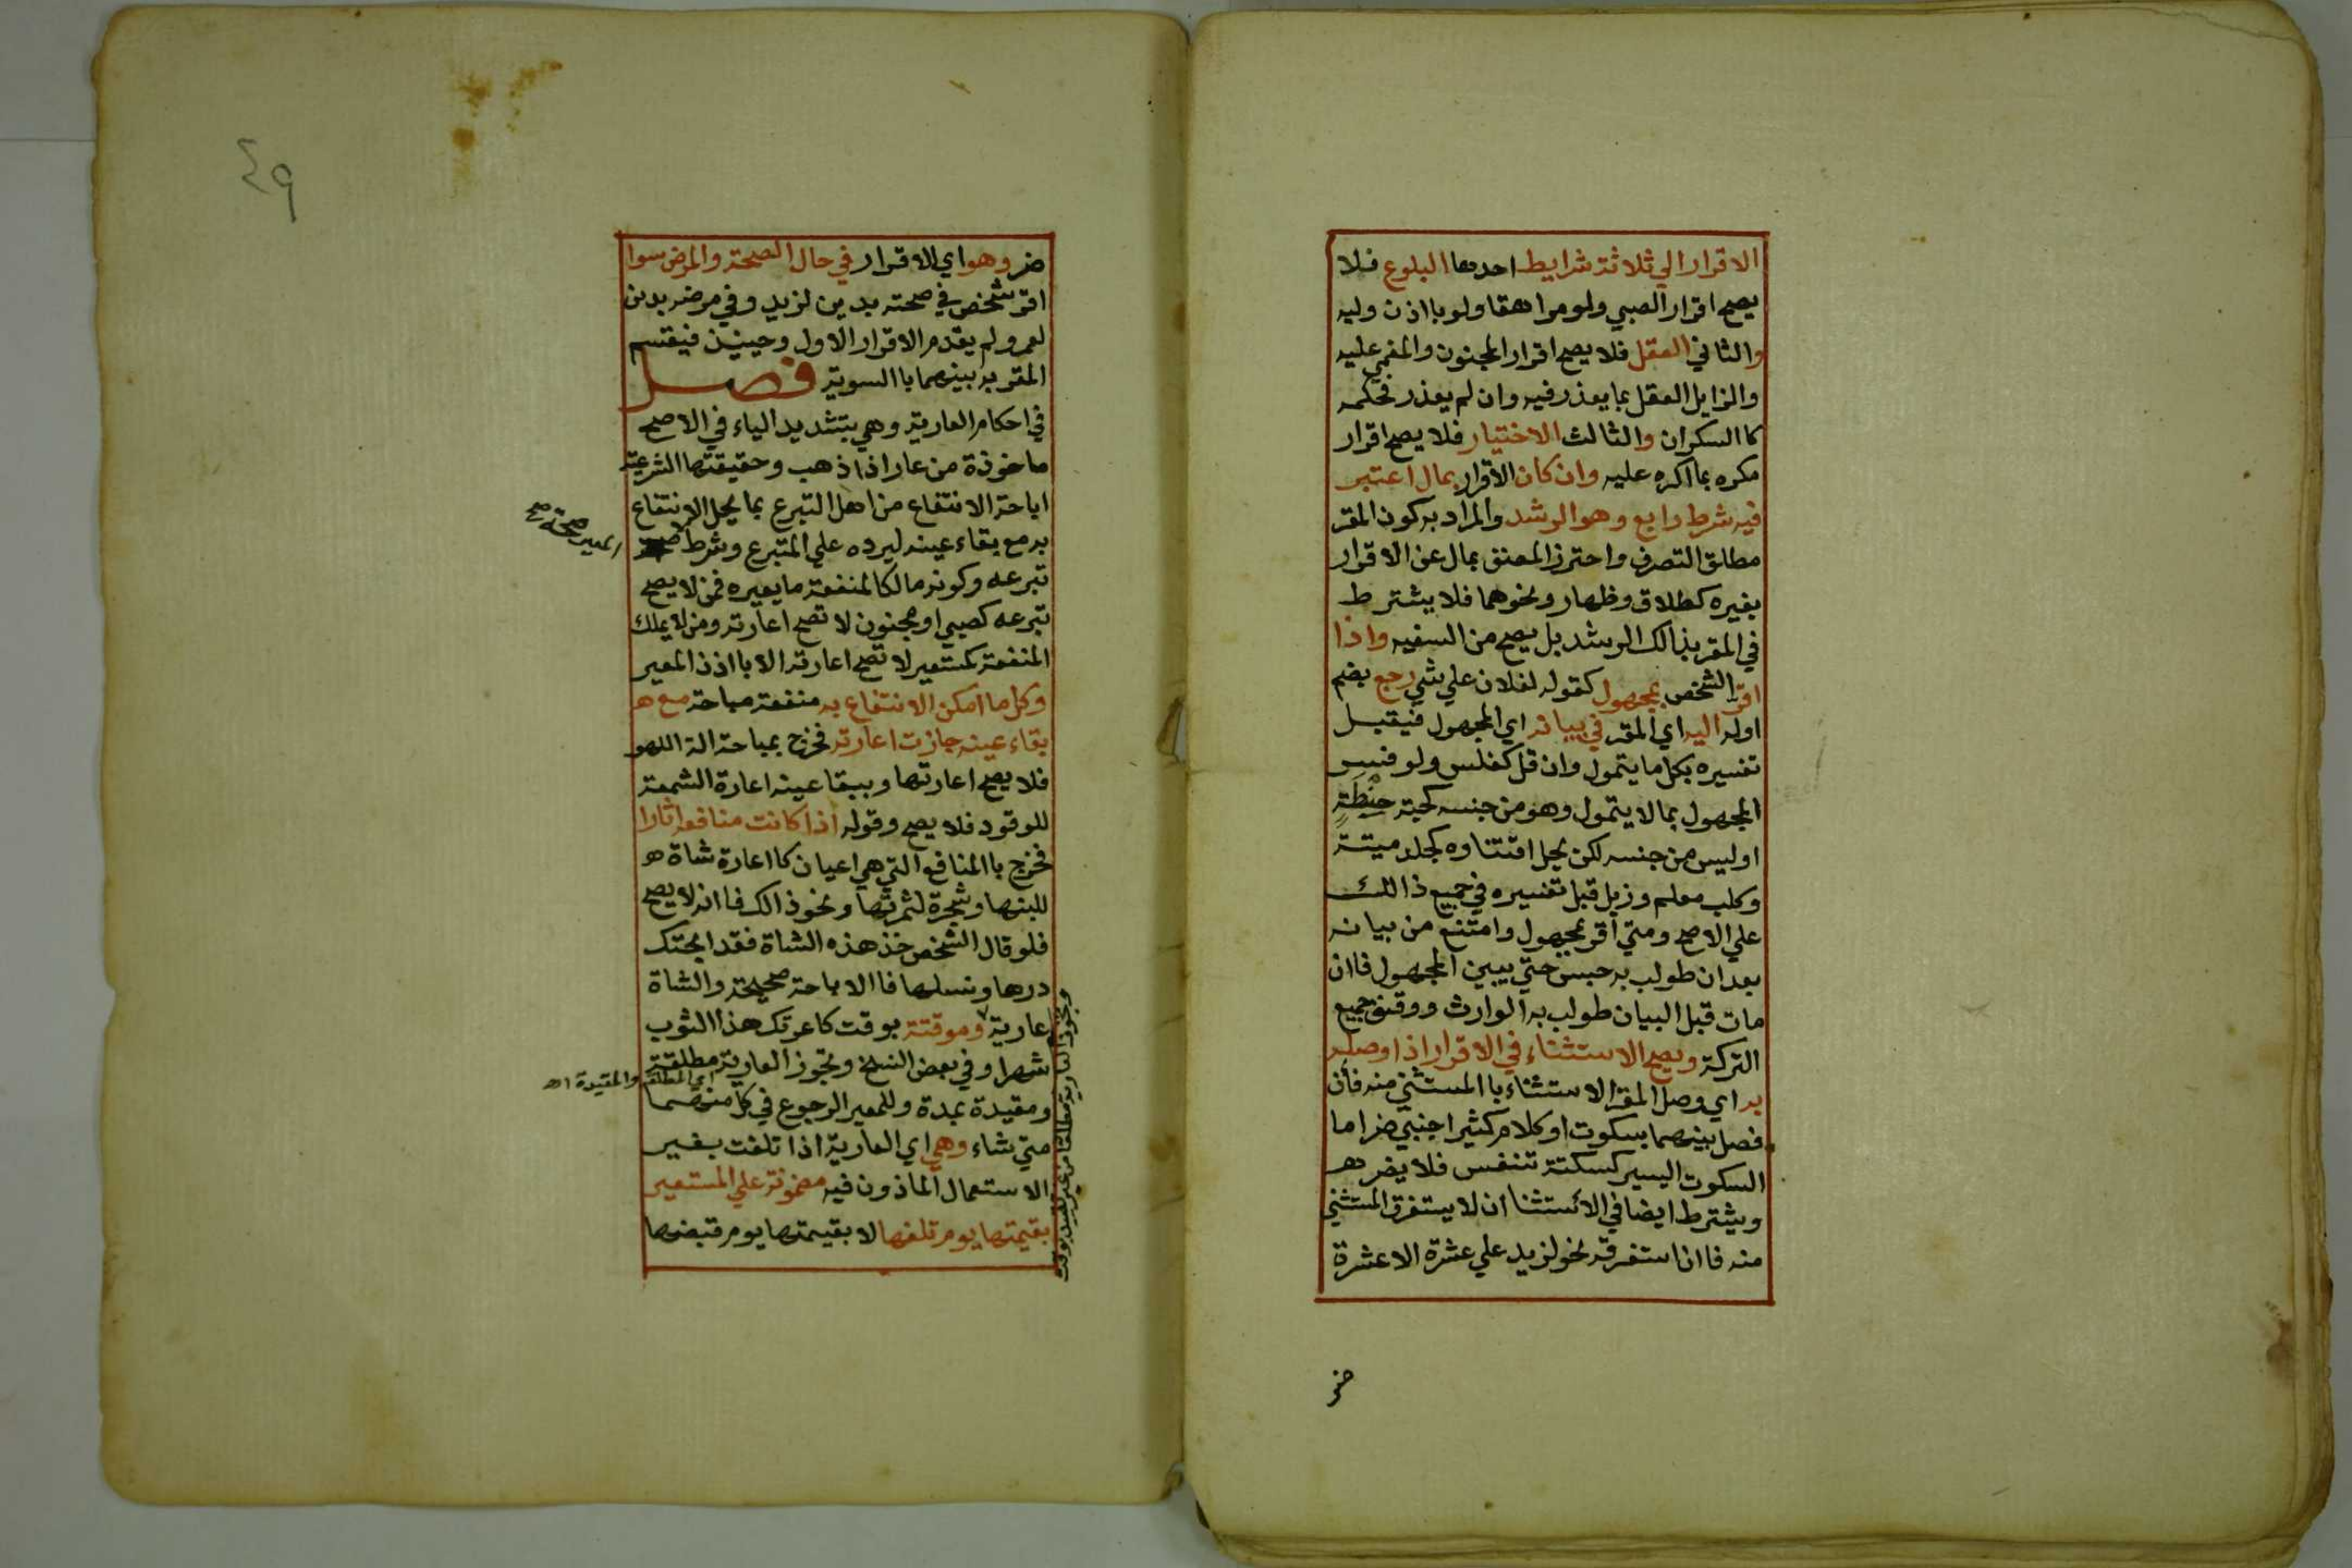 الاقرار الي ثلاثة شرايط احدها البلوغ فلا
يصح اقرار الصبي ولو مراهقا ولو بااذن وليه
والثاني العقل فلا يصح اقرار المجنون والمغمي عليه
والزايل العقل بما يعذر فيه وان لم يعذر فحكمه
كاالسكران والثالث الاختيار فلا يصح اقرار
مكره بما اكره عليه وان كان الاقرار بمال اعتبر
فيه شرط رابع وهو الرشد والمراد به كون المقر
مطلق التصرف واحترز المصنق بمال عن الاقرار
بغيره كطلاق وظهار ونحوهما فلا يشترط
في المقر بذالك الرشد بل يصح من السفيه واذا
اقر الشخص بمجهول كقوله لفلان علي شي رجع بضم
اوله اليه اي المقر في بيانه اي المجهول فيقبل
تفسيره بكل ما يتمول وان قل كفلس ولو فسر
المجهول بما لا يتمول وهو من جنسه كحبة حِنْطَةٍ
او ليس من جنسه لكن يحل اقتناوه كجلد ميتة
وكلب معلم وزبل قبل تفسيره في جميع ذالك
علي الاصح ومتي اقر بمجهول وامتنع من بيانه
بعد ان طولب به حبس حتي يبين المجهول فاان
مات قبل البيان طولب به الوارث ووقف جميع
التركة ويصح الاستثناء في الاقرار اذا وصله
به اي وصل المقر الاستثناء باالمستثني منه فأن
فصل بينهما بسكوت او كلام كثير اجنبي ضر اما
السكوت اليسير كسكتة تنفس فلا يضر هـ
ويشترط ايضا في الائستثنا ان لا يستغرق المستثني
منه فاان استغرقه نحو لزيد علي عشرة الا عشرة
ضر
٤٩
ضر وهو اي الاقرار في حال الصحة والمرض سوا
اقر شخص في صحته بدين لزيد وفي مرضه بدين
لعمرو لم يقدم الاقرار الاول وحينيذ فيقسم
المقر به بينهما باالسوية فصل
في احكام العارية وهي بتشديد الياء في الاصح
ماخوذة من عار اذا ذهب وحقيقتها الشرعية
اباحة الانتفاع من اهل التبرع بما يحل الانتفاع
به مع بقاء عينه ليرده علي المتبرع وشرط
المعير صحة صح
تبرعه وكونه مالكا لمنفعة ما يعيره فمن لا يصح
تبرعه كصبي او مجنون لا تصح اعارته ومن لا يملك
المنفعة كمستعير لا تصح اعارته الا بااذن المعير
وكل ما امكن الانتفاع به منفعة مباحة مع هـ
بقاء عينه جازت اعارته فخرج بمباحة الة اللهو
فلا يصح اعارتها وببقا عينه اعارة الشمعة
للوقود فلا يصح وقوله اذا كانت منافعه اثارا
فخرج باالمنافع التي هي اعيان كااعارة شاة هـ
للبنها وشجرة لثمرتها ونحو ذالك فاانه لا يصح
فلو قال الشخص خذ هذه الشاة فقد ابحتك
درها ونسلها فاالاباحة صحيحة والشاة
عارية وموقتة بوقت كاعرتك هذا الثوب
وتجوز العارية مطلقا من غير تقييد بوقت
شهرا وفي بعض النسخ وتجوز العارية مطلقة
ومقيدة بمدة وللمعير الرجوع في كل منهما
اي المطلقة والمقيدة اهـ
متي شاء وهي اي العارية اذا تلفت بغير
الاستعمال الماذون فيه مضمونة علي المستعير
بقيمتها يوم تلفها لا بقيمتها يوم قبضها